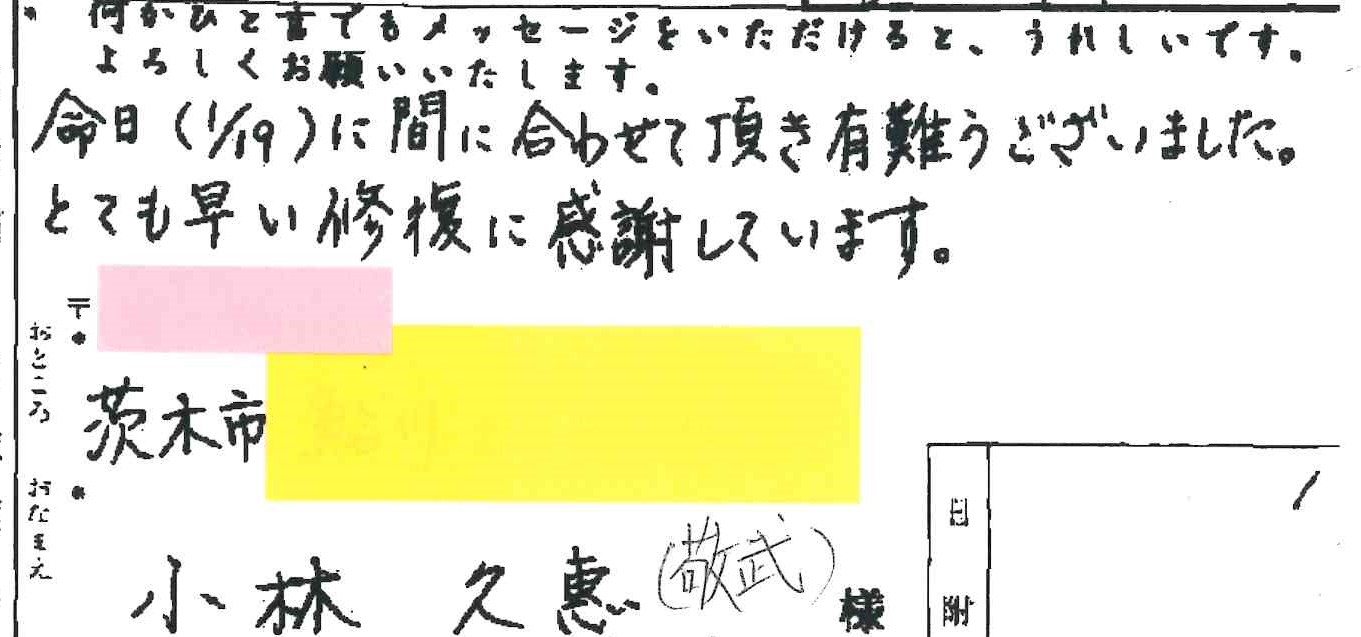 * 何かひと言でもメッセージをいただけると、うれしいです。
よろしくお願いいたします。
命日(1/19)に間に合わせて頂き有難うございました。
とても早い修復に感謝しています。
〒
*
おところ
茨木市
*
おなまえ
小林 久恵(敬武)様
日附